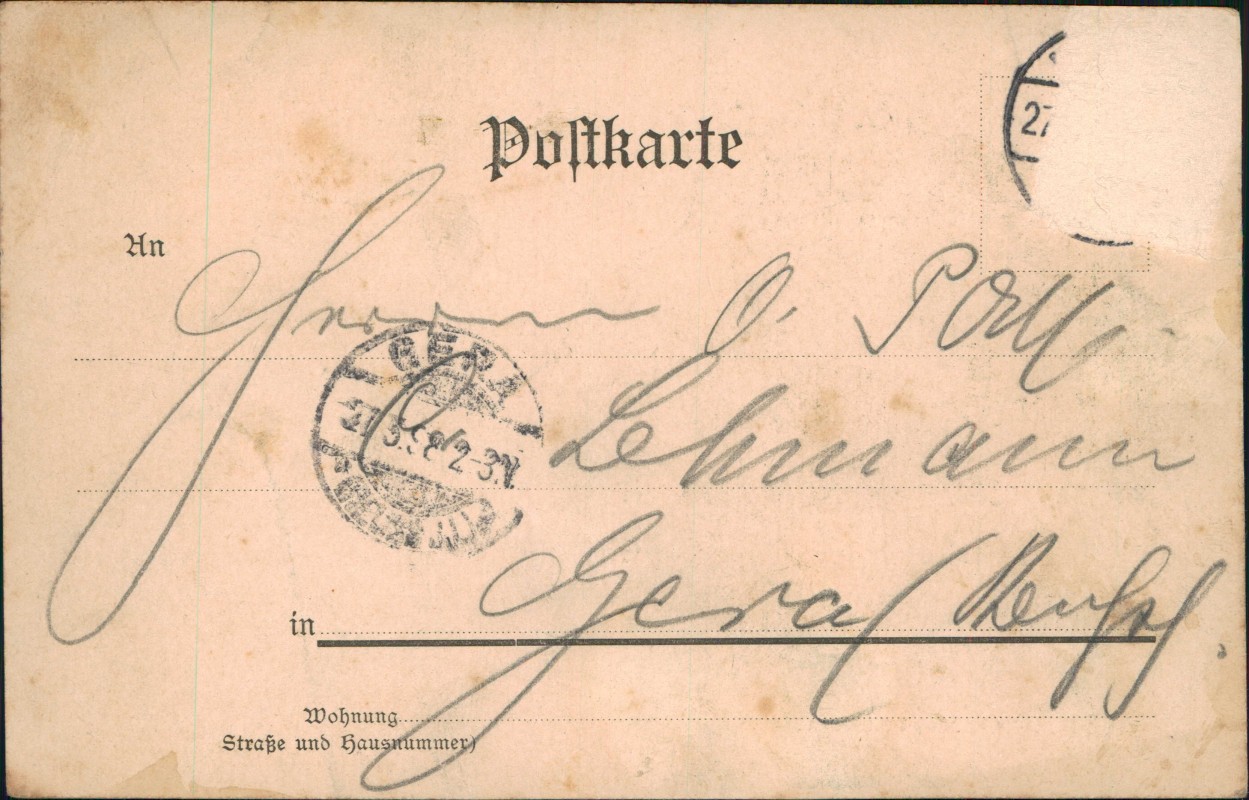 Postkarte
27
An
Herrn O.
GERA
27.3.98 2-3N.
Lehmann
in Gera (Reuß)
Wohnung
Straße und Hausnummer)